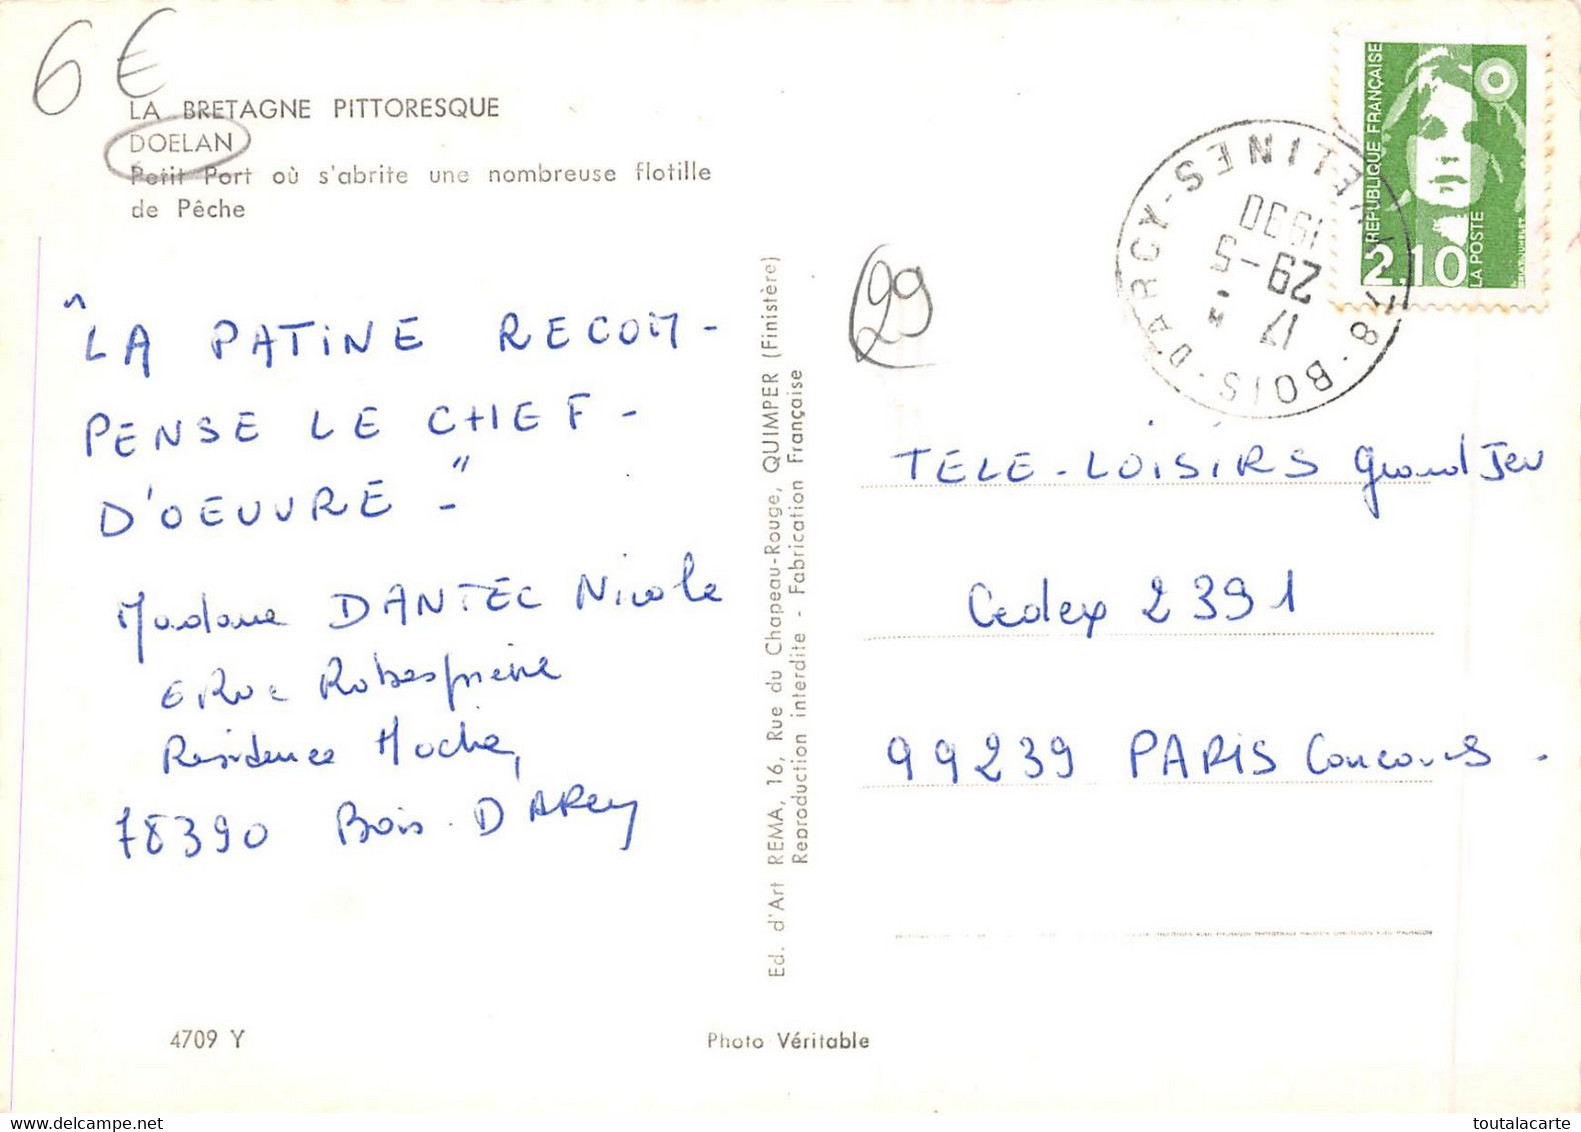 6€
LA BRETAGNE PITTORESQUE
DOELAN
Petit Port où s'abrite une nombreuse flotille
de Pêche
"LA PATINE RECOM-
PENSE LE CHEF-
D'OEUVRE-"
Madame DANTEC Nicole
6 Rue Robespierre
Résidence Hoche,
78390 Bois D'ARcy
4709 Y
Photo Véritable
Ed. d'Art REMA, 16, Rue du Chapeau-Rouge, QUIMPER (Finistère)
Reproduction interdite - Fabrication Française
29
78-BOIS-D'ARCY-YVELINES
17 *
29-5
1990
RÉPUBLIQUE FRANÇAISE
2,10
LA POSTE
TELE-LOISIRS Grand Jeu
Cedex 2391
99239 PARIS Concours.
toutalacarte